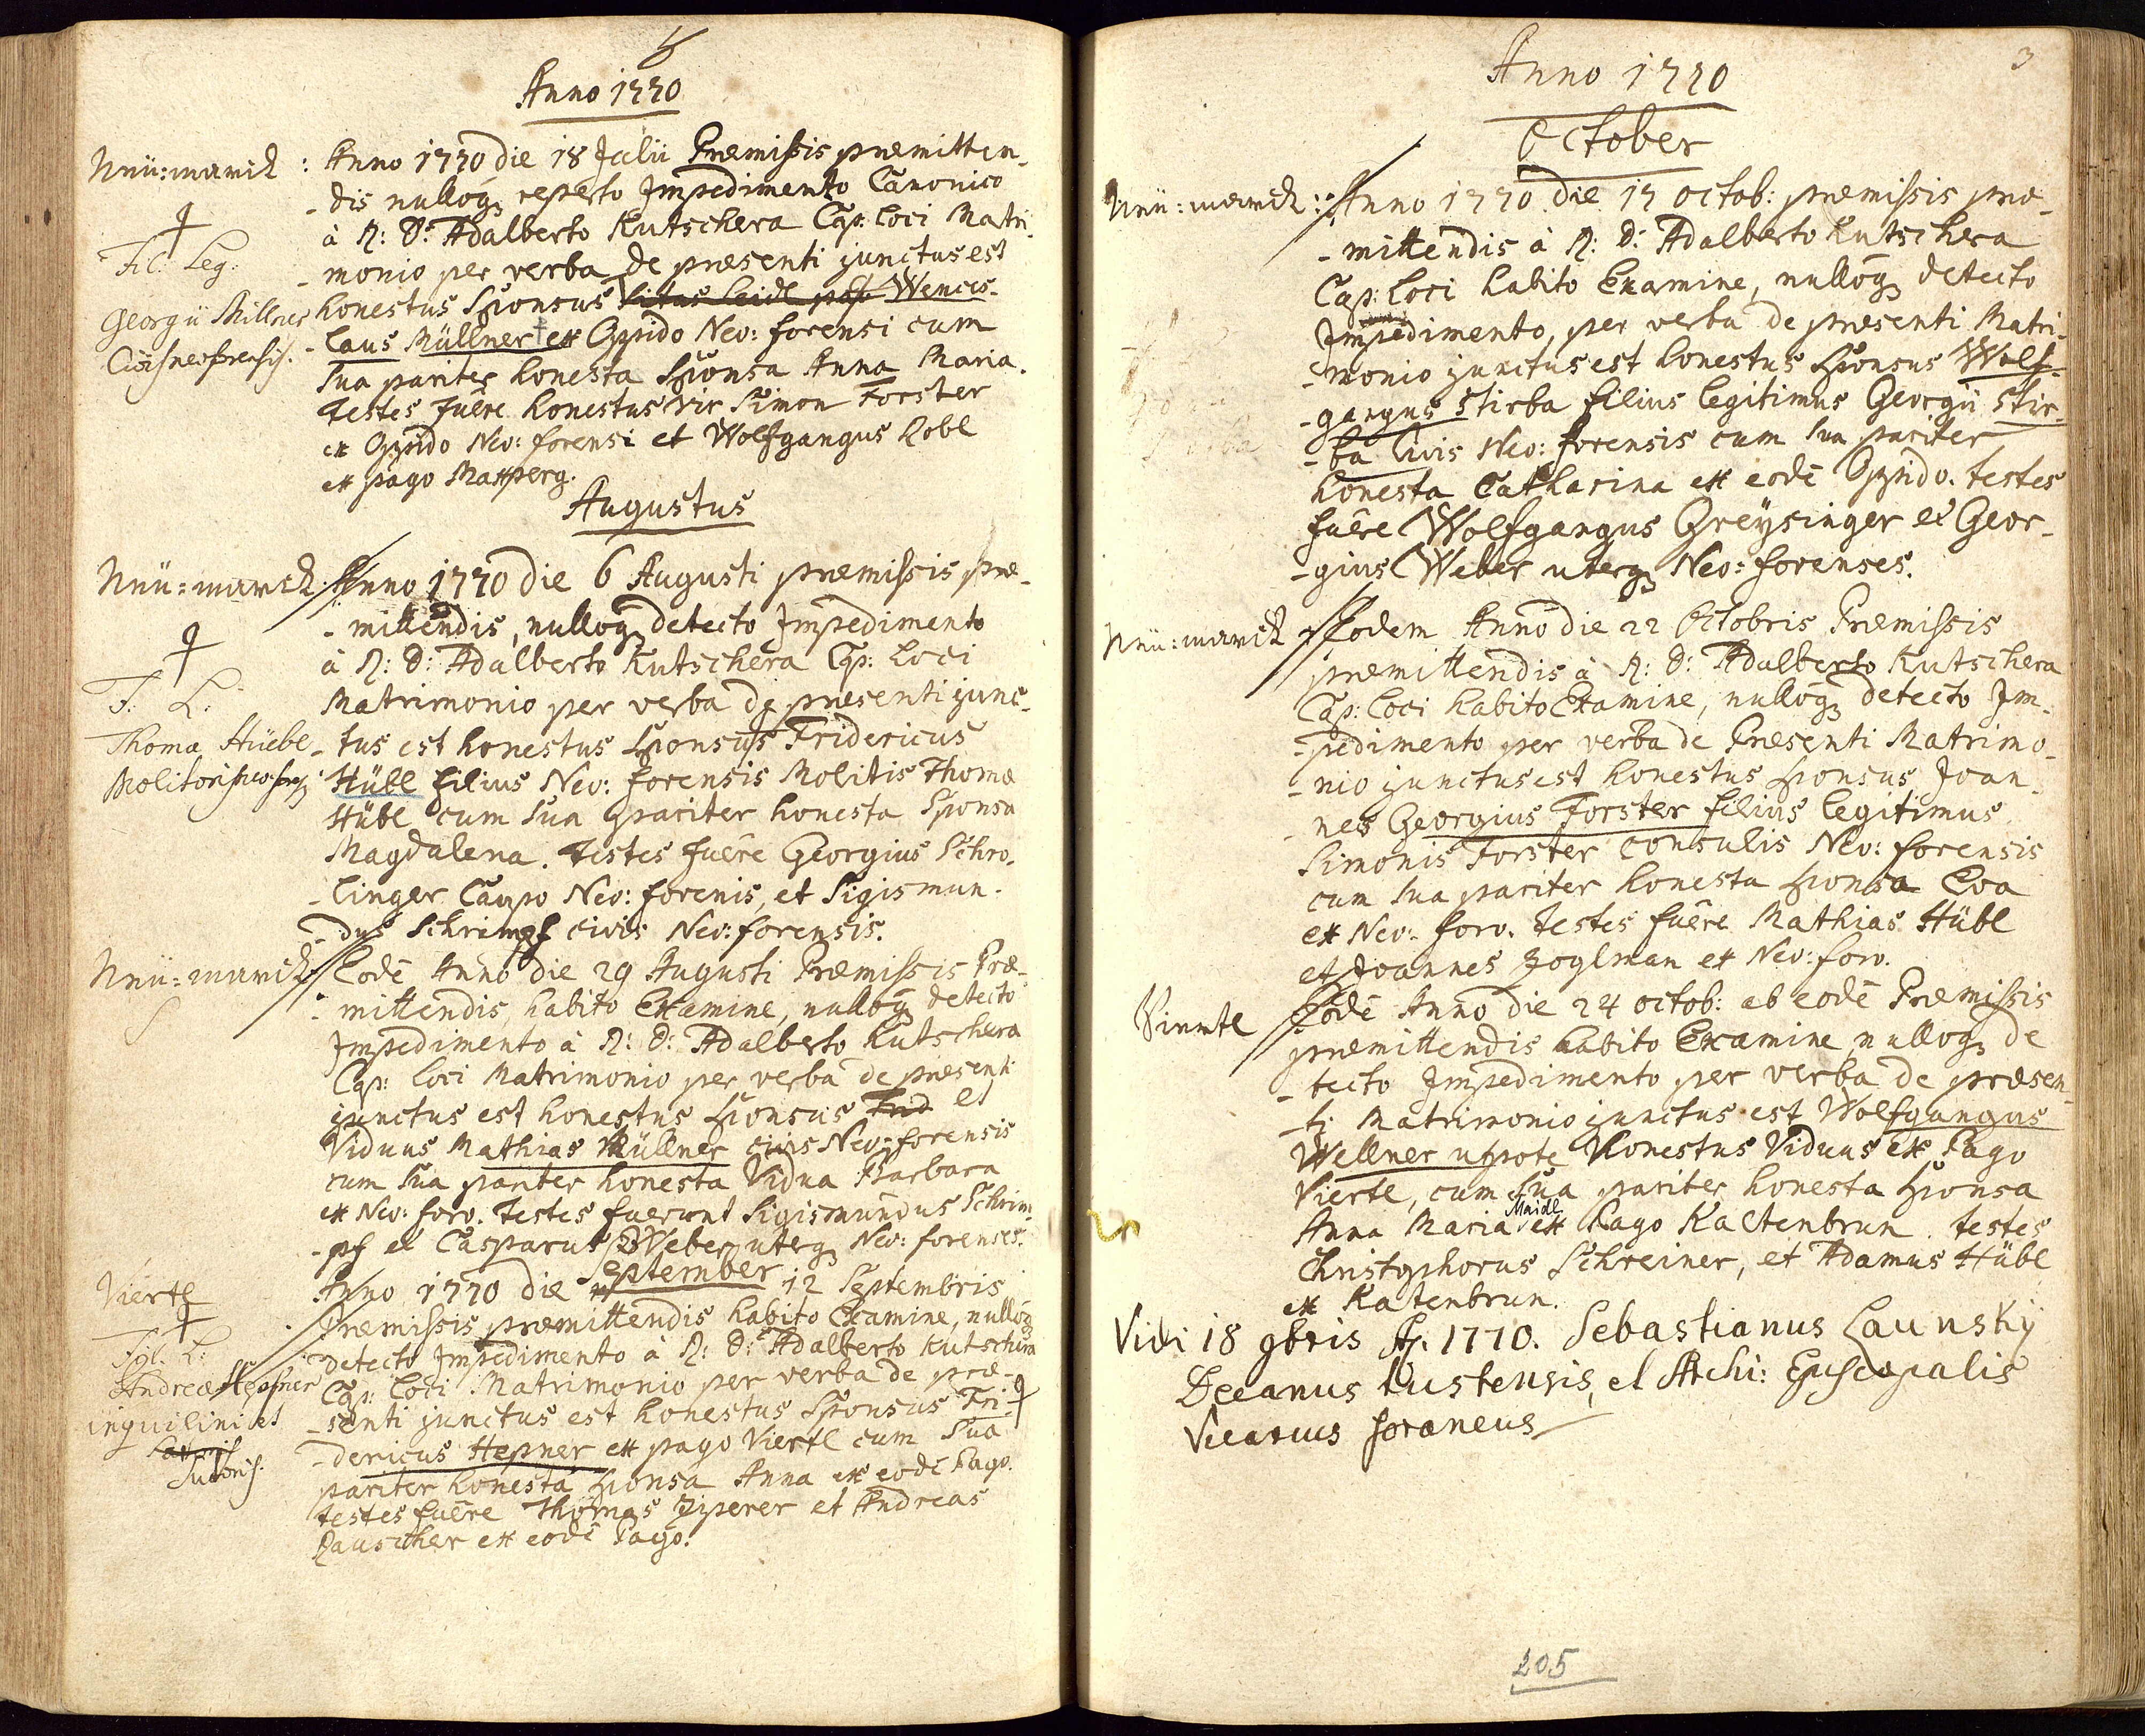 Anno 1770
Neü=marck :
Anno 1770 die 18 Julii Præmissis præmitten-
-dis nulloq; reperto Impedimento Canonico
à R: D: Adalberto Kutschera Cap: Loci Matri-
-monio per verba de præsenti junctus est
honestus Sponsus Vitus Leidl Wences-
-laus Müllner ex Oppido Neo: forensi cum
sua pariter honesta Sponsa Anna Maria.
Testes fuêre honestus vir Simon Forster
ex Oppido Neo: forensi et Wolfgangus Lobl
ex pago Maxperg.
Fil: Leg:
Georgii Millner
Civis neoforensis.
Augustus
Neü=marck:
Anno 1770 die 6 Augusti præmissis præ-
-mittendis, nulloq; detecto Impedimento
à R: D: Adalberto Kutschera Cap: Loci
Matrimonio per verba de præsenti junc-
-tus est honestus Sponsus Fridericus
Hübl filius Neo: forensis Molitis Thomæ
Hübl cum sua pariter honesta Sponsa
Magdalena. Testes fuêre Georgius Schro-
-linger Caupo Neo: forenis, et Sigismun-
-dus Schrimpf civis Neo: forensis.
F: L:
Thoma Hüebl
Molitoris
Neü=marck
Eodē Anno die 29 Augusti Præmissis Præ-
-mittendis, habito Examine, nulloq; detecto
Impedimento à R: D: Adalberto Kutschera
Cap: Loci Matrimonio per verba de præsenti
junctus est honestus Sponsus Frid et
Viduus Mathias Müllner civis Neo: forensis
cum sua pariter honesta Vidua Barbara
ex Neo: foro. Testes fuerunt Sigismundus Schrim-
-pf et Casparus Weber uterq; Neo: forenses.
September
Viertl
Anno 1770 die 12 Septembris
Præmissis præmittendis habito Examine, nulloq;
detecto Impedimento à R: D: Adalberto Kutschera
Cap: Loci Matrimonio per verba de præ-
-senti junctus est honestus Sponsus Fri-
-dericus Hepner ex pago Viertl cum sua
pariter honesta Sponsa Anna ex eodē Pago.
testes fuêre Thomas Ziperer et Andreas
Rauscher ex eodē Pago.
Fil. L:
Andreæ Hepfner
inquilini et
Sutoris.
3
Anno 1770
October
Neü=marck:
Anno 1770 die 17 octob: præmissis præ-
-mittendis à R: D: Adalberto Kutschera
Cap: Loci habito Examine, nulloq; detecto
Impedimento, per verba de præsenti Matri-
-monio junctus est honestus Sponsus Wolf-
-gangus Stirba filius legitimus Georgii Stir-
-ba Civis Neo: forensis cum sua pariter
honesta Catharina ex eodē Oppido. testes
fuêre Wolfgangus Greysinger et Geor-
-gius Weber uterq; Neo: forenses.
Neü=marck
Eodem Anno die 22 Octobris Præmissis
præmittendis à R: D: Adalberto Kutschera
Cap: Loci habito Examine, nulloq; detecto Im-
-pedimento per verba de Præsenti Matrimo-
-nio junctus est honestus Sponsus Joan-
-nes Georgius Forster filius legitimus
Simonis Forster consulis Neo: forensis
cum sua pariter honesta Sponsa Eva
ex Neo: foro. Testes fuêre Mathias Hübl
et Joannes Zoglman ex Neo: foro.
Viertl
Eodē Anno die 24 octob: ab eodē Præmissis
præmittendis habito Examine nulloq; de
-tecto Impedimento per verba de præsen-
-ti Matrimonio junctus est Wolfgangus
Wellner utpote Honestus Viduus ex Pago
Viertl, cum sua pariter honesta Sponsa
Anna Maria Maidl ex Pago Kaltenbrun. testes
Christophorus Schreiner, et Adamus Hübl
ex Katenbrun.
Vidi 18 9bris A. 1770. Sebastianus Launsky
Decanus Tustensis, et Archi: Episcopalis
Vicarius foraneus
205